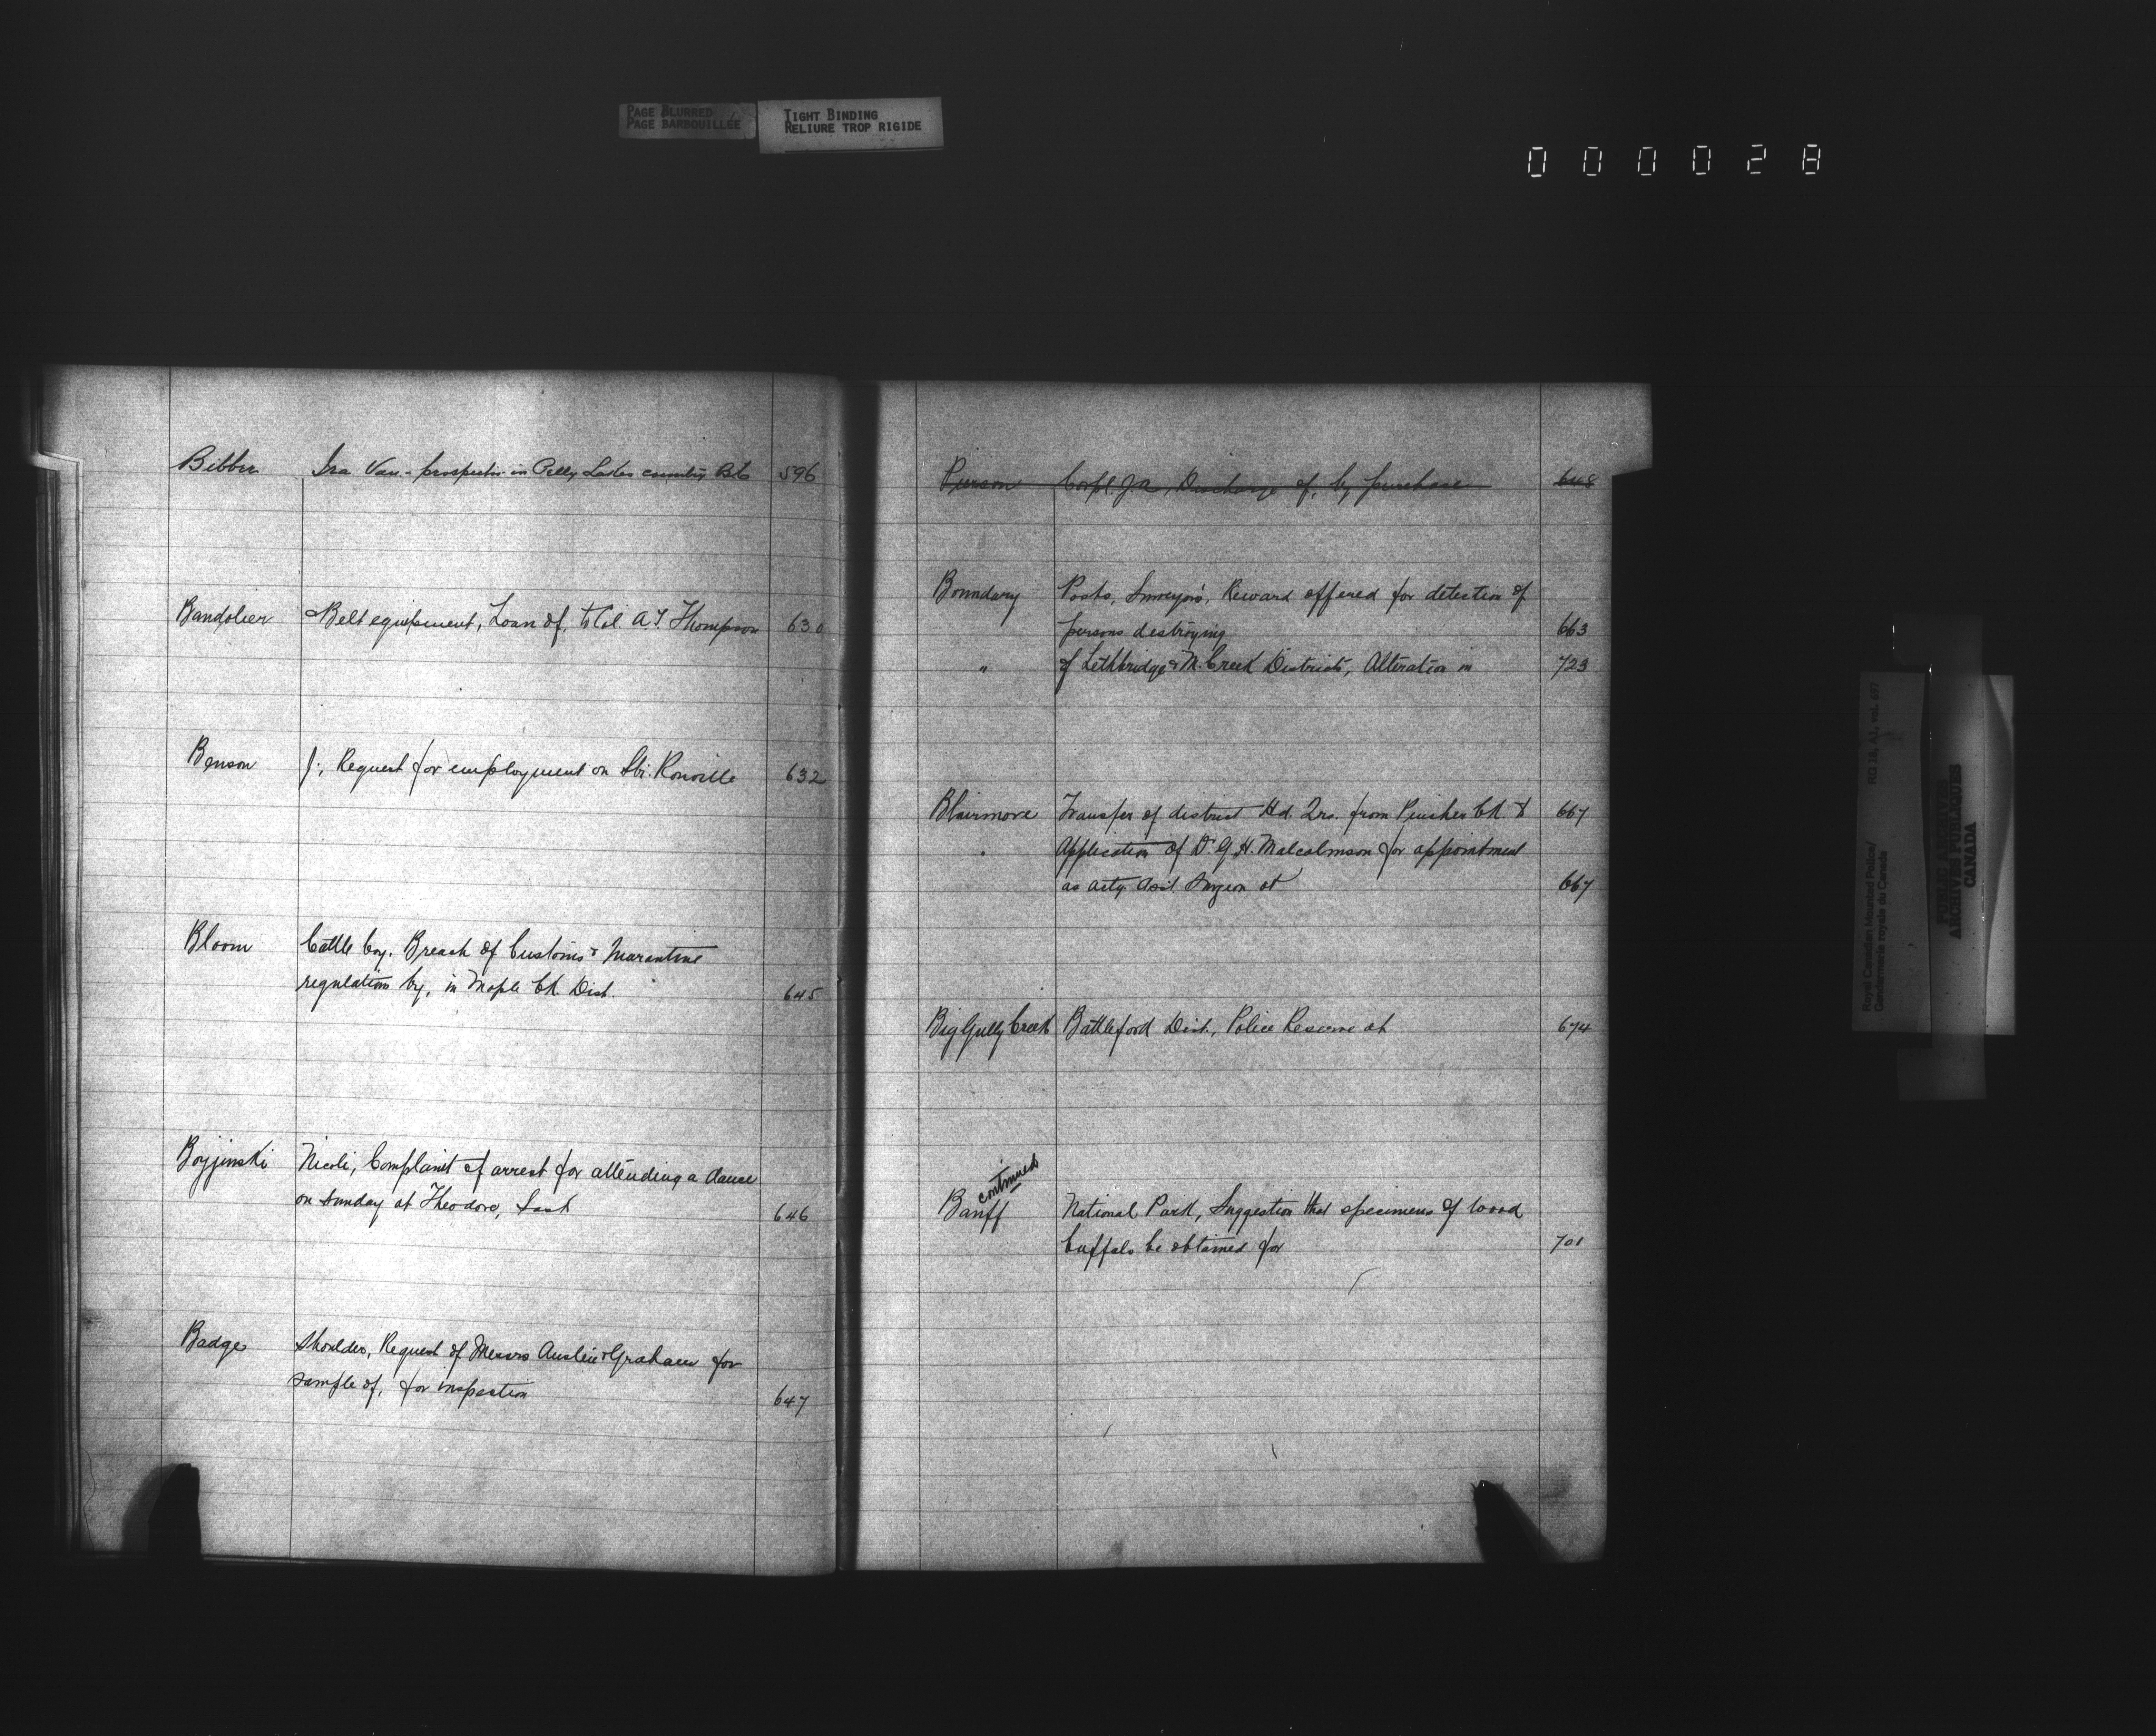 PAGE BLURRED
PAGE BARBOUILLÉE
TIGHT BINDING
RELIURE TROP RIGIDE
000028
Bibber Ira Van - prospector in Pelly Lakes country B.C. 596
Bandolier Belt equipment, Loan of, to Col. A.T. Thompson 630
Benson J., Request for employment on Str. Rouville 632
Bloom Cattle Coy. Breach of Customs &
regulations by, in Maple Ck Dist. 645
Boyjinski Nicoli, Complaint of arrest for attending a dance
on Sunday at Theodore, Sask 646
Badge Shoulder, Request of Messrs Austin & Graham for
sample of, for inspection 647
Pierson Corpl. J.A., Discharge of, by purchase 648
Boundary Posts, Surveyors', Reward offered for detection of
persons destroying 663
" of Lethbridge & M. Creek Districts, Alteration in 723
Blairmore Transfer of district Hd. Qrs. from Pincher Ck. to 667
" Application of Dr G.H. Malcolmson for appointment
as actg Asst. Surgeon at 667
Big Gully Creek Battleford Dist., Police Reserve at 674
continued
Banff National Park, Suggestion that specimens of wood
buffalo be obtained for 701
Royal Canadian Mounted Police/ RG 18, A1, vol. 697
Gendarmerie royale du Canada
PUBLIC ARCHIVES
ARCHIVES PUBLIQUES
CANADA